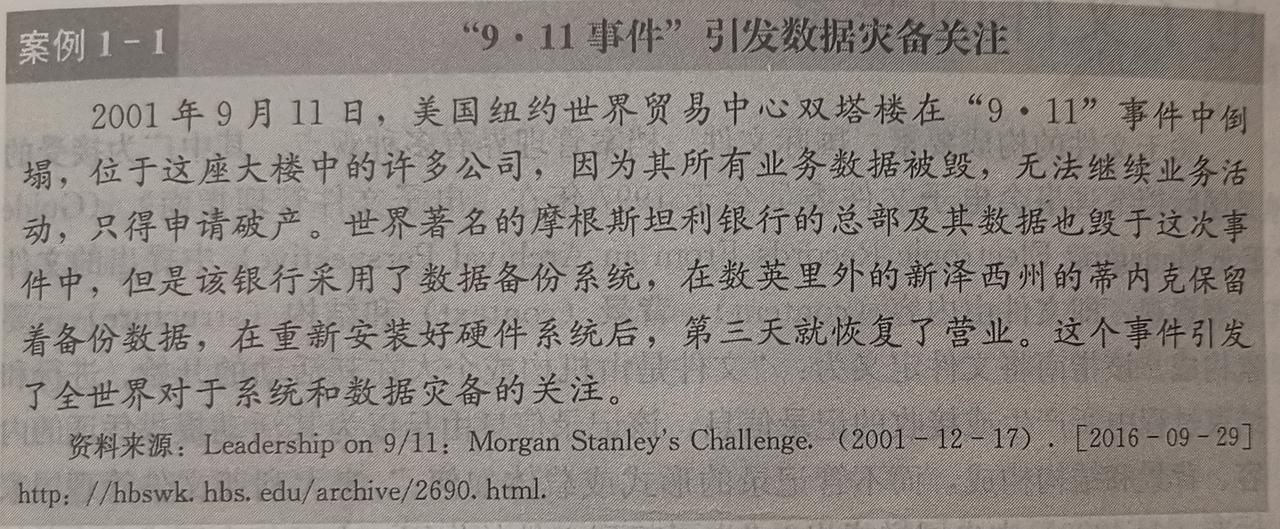 案例1-1
“9·11事件”引发数据灾备关注
2001年9月11日，美国纽约世界贸易中心双塔楼在“9·11”事件中倒
塌，位于这座大楼中的许多公司，因为其所有业务数据被毁，无法继续业务活
动，只得申请破产。世界著名的摩根斯坦利银行的总部及其数据也毁于这次事
件中，但是该银行采用了数据备份系统，在数英里外的新泽西州的蒂内克保留
着备份数据，在重新安装好硬件系统后，第三天就恢复了营业。这个事件引发
了全世界对于系统和数据灾备的关注。
资料来源：Leadership on 9/11：Morgan Stanley's Challenge.（2001-12-17）.［2016-09-29］
http：//hbswk. hbs. edu/archive/2690. html.